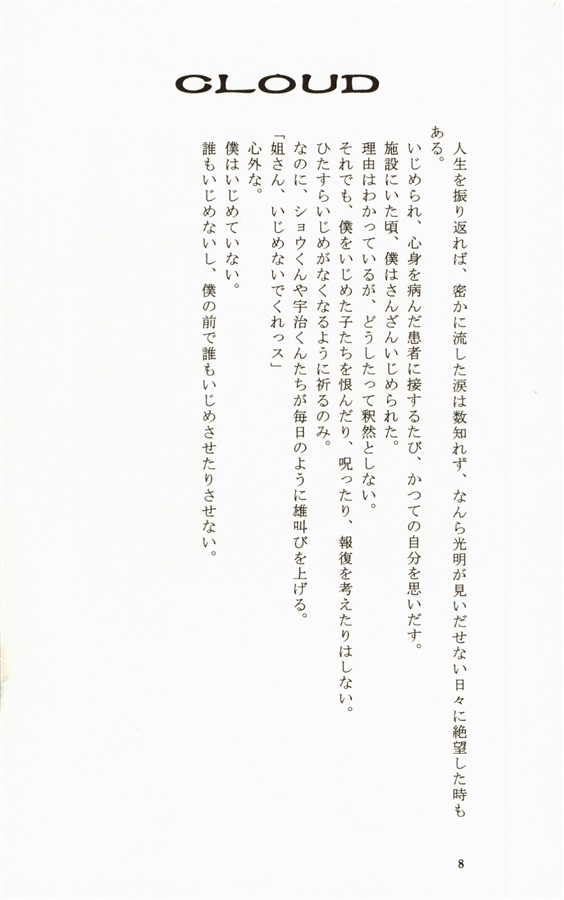 CLOUD
人生を振り返れば、密かに流した涙は数知れず、なんら光明が見いだせない日々に絶望した時も
ある。
いじめられ、心身を病んだ患者に接するたび、かつての自分を思いだす。
施設にいた頃、僕はさんざんいじめられた。
理由はわかっているが、どうしたって釈然としない。
それでも、僕をいじめた子たちを恨んだり、呪ったり、報復を考えたりはしない。
ひたすらいじめがなくなるように祈るのみ。
なのに、ショウくんや宇治くんたちが毎日のように雄叫びを上げる。
「姐さん、いじめないでくれっス」
心外な。
僕はいじめていない。
誰もいじめないし、僕の前で誰もいじめさせたりさせない。
8